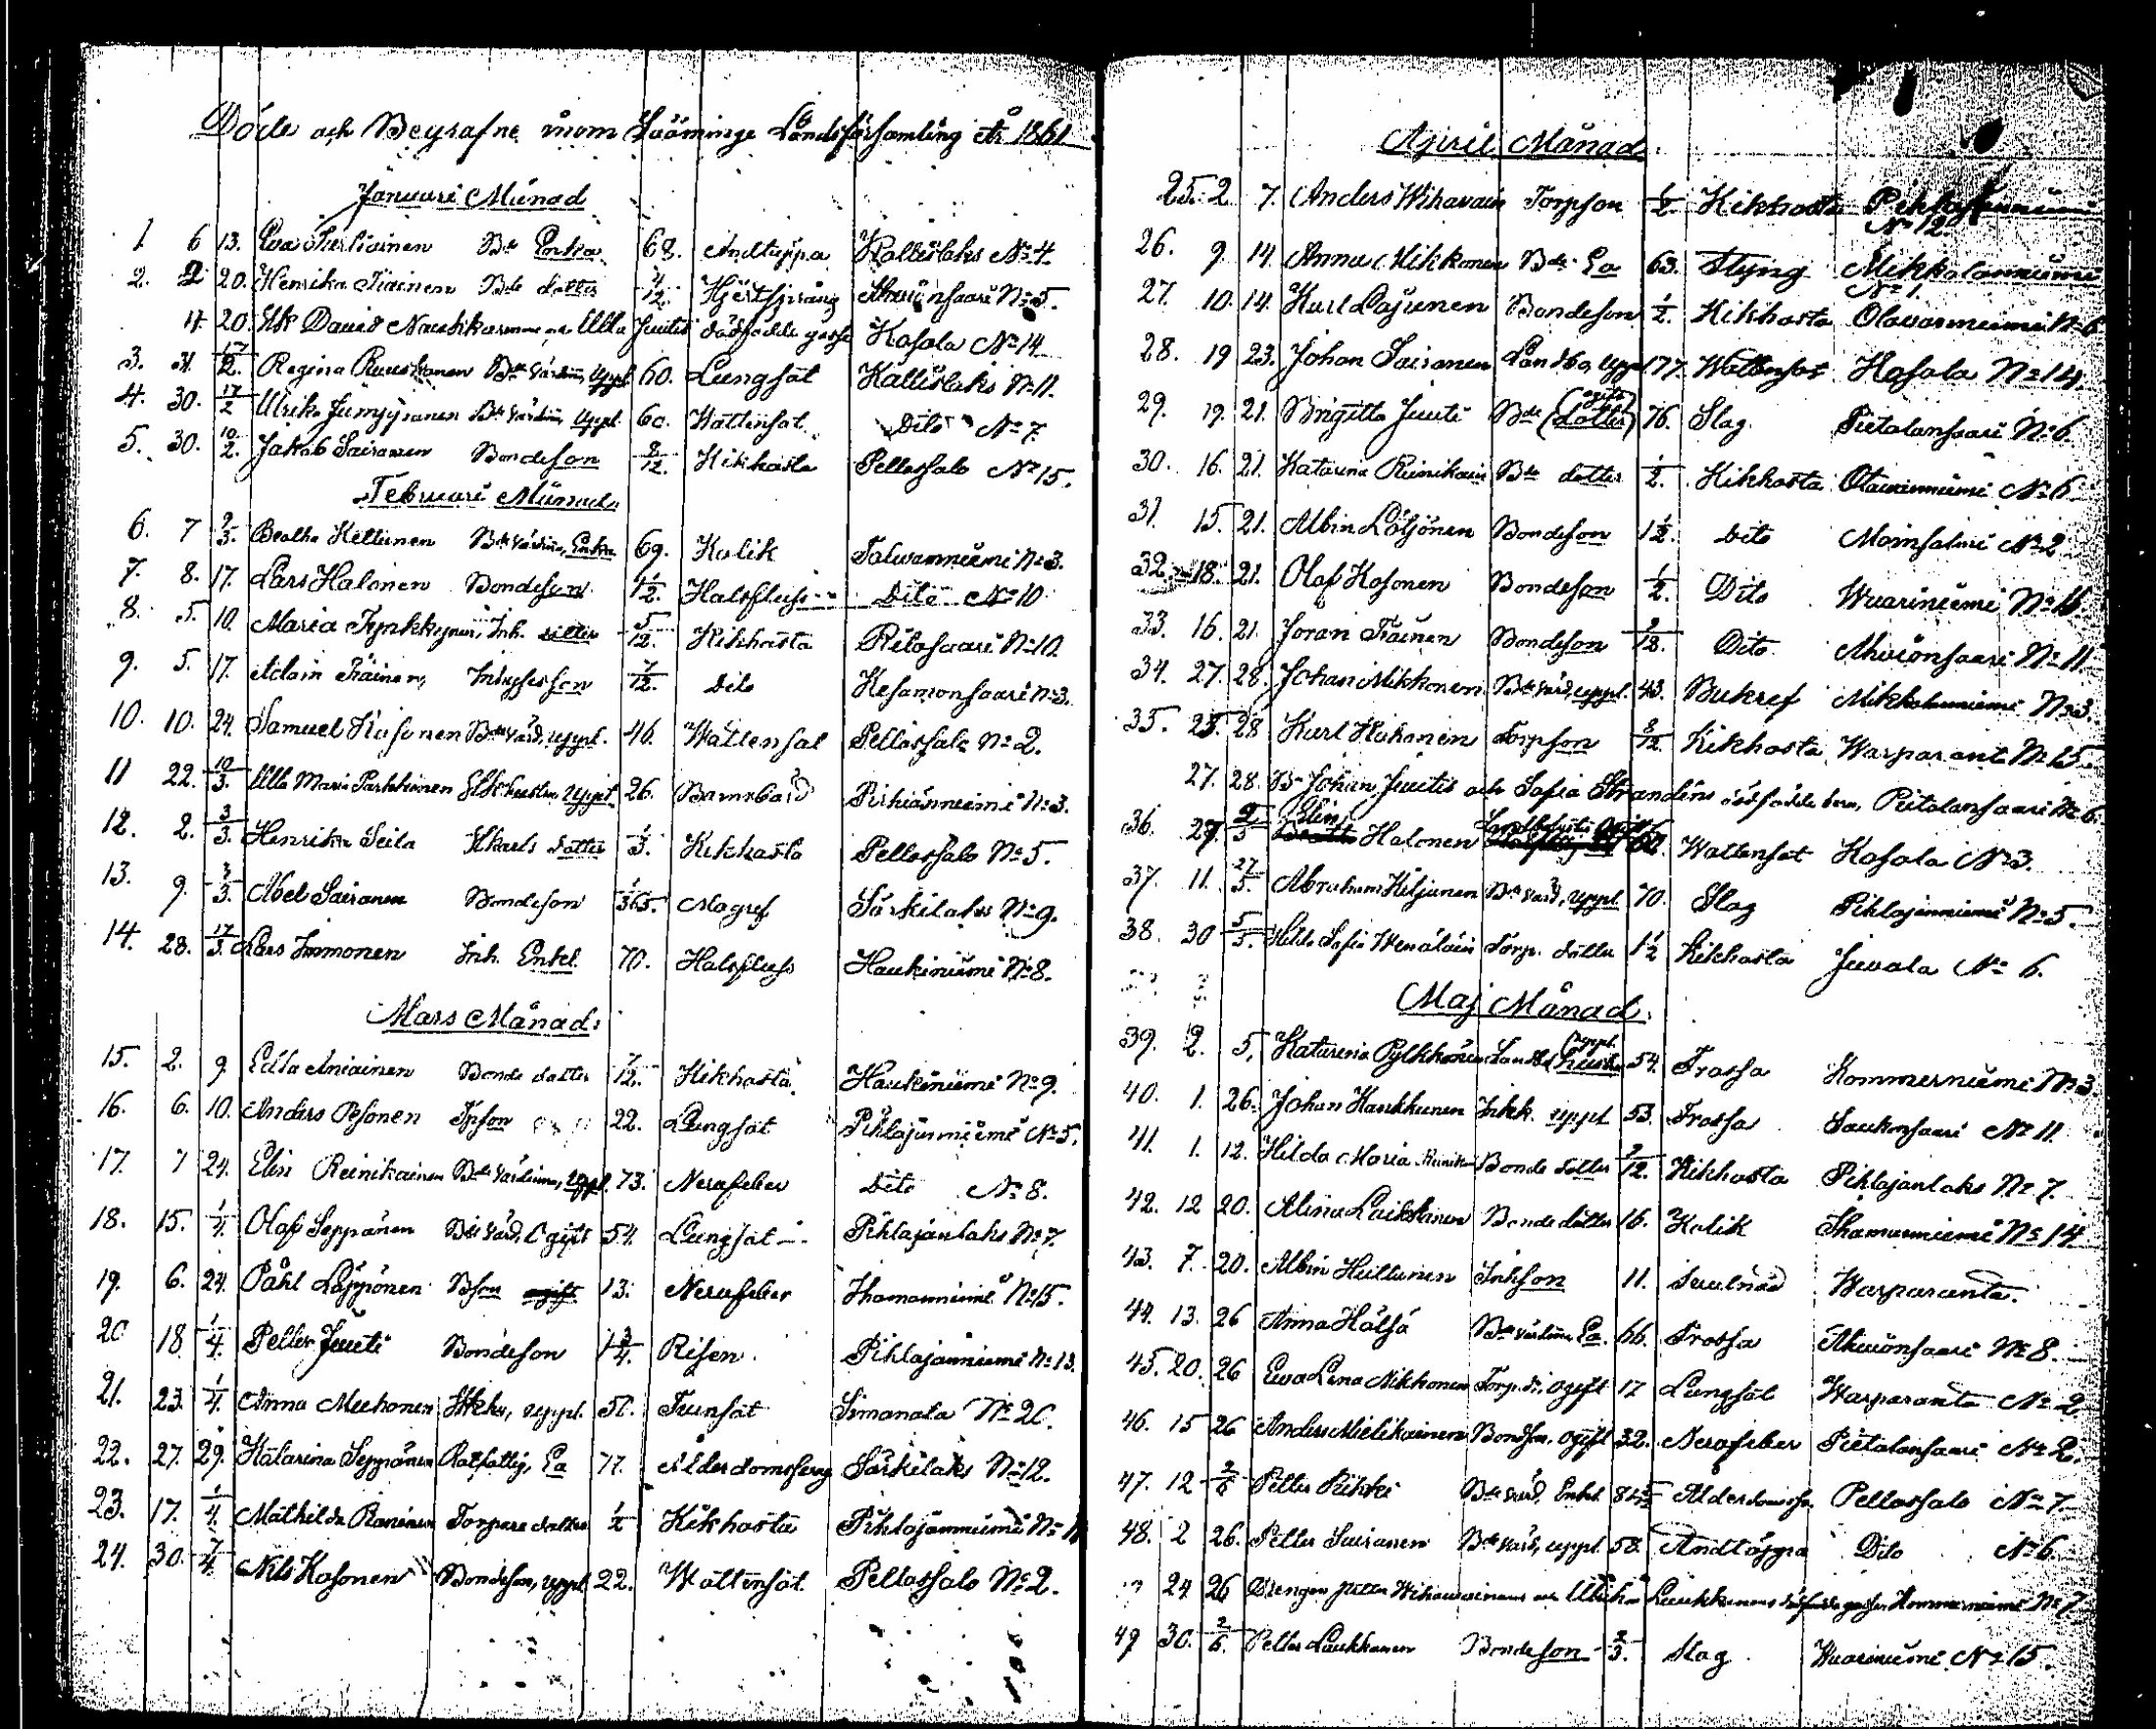 Döde och Begrafne inom Sääminge Landsförsamling År 1861
Januari Månad
1. 6 13. Eva Turtiainen Bde Enka 68. Andtäppa Kallislaks No 4.
2. 2 20. Henrika Tiainen Bde dotter 4/12. Hjertsprång Ahvionsaari No 5.
4. 20. David Ulla Juutis dödfödde gosse Kosola No 14
3. 31. 17/2. Regina Ruuskanen Bde värdinna, Uppl. 60. Lungsot Kallislaks No 11.
4. 30. 17/2 Ulrika Bde värdinna, Uppl. 60. Wattensot Dito No 7.
5. 30. 10/2. Jakob Sairanen Bondeson 8/12. Kikhosta Pellossalo No 15.
Februari Månad
6. 7 2/3. Beatha Kettunen Bde värdinna, Enka 69. Kolik Talvionniemi No 3.
7. 8. 17. Lars Halonen Bondeson 1 1/2. Halsfluss Dito No 10
8. 5. 10. Maria Tynkkynen, Inh. dotter 5/12. Kikhosta Ritosaari No 10.
9. 5. 17. Adam Räinen, Inhyseson 7/12. Dito Kesamonsaari No 3.
10. 10. 24. Samuel Kosonen Bde värd, uppl. 46. Wattensot Pellossalo No 2.
11 22. 10/3. Ulla Maria Parkkinen uppl. 26. Barnsbörd Pirhiänniemi No 3.
12. 2. 3/3. Henrika Seila dotter 1/3. Kikhosta Pellossalo No 5.
13. 9. 3/3. Abel Sairanen Bondeson 1/365. Magref Särkilaks No 9.
14. 28. 17/3. Lars Immonen Inh. Enkl. 70. Halsfluss Haukiniemi No 8.
Mars Månad.
15. 2. 9 Edla Aniainen Bonde dotter 7/12. Kikhosta Haukiniemi No 9.
16. 6. 10. Anders Pesonen Tpson 22. Lungsot Pihlajanniemi No 5.
17. 7 24. Elin Reinikainen Bde värdinna, uppl. 73. Nerffeber Dito No 8.
18. 15. 1/4. Olof Seppänen Bde värd, Ogift 54. Lungsot Pihlajanlaks No 7.
19. 6. 24. Påhl Läppönen Bson 13. Nerffeber Ihamaniemi No 15.
20 18. 1/4. Petter Juuti Bondeson 1 3/4. Risen Pihlajanniemi No 13.
21. 23. 1/4. Anna Meehonen uppl. 50. Tvinsot Simanala No 20.
22. 27. 29. Katarina Seppänen Rotfattig, Ea 77. Ålderdomssvag Särkilaks No 12.
23. 17. 1/4. Mathilda Raninen Torpare dotter 1/2 Kikhosta Pihlajanniemi
24. 30. 7/4. Nils Kosonen Bondeson, uppl. 22. Wattensot Pellossalo No 2.
April Månad.
25. 2 7. Anders Wihavain Torpson 1/2 Kikhosta Pihlajanniemi No 12.
26. 9 14. Anna Mikkonen Bde Ea 63. Styng Mikkolanniemi No 1.
27. 10. 14. Karl Pajunen Bondeson 1/2. Kikhosta Olavanniemi No 6
28. 19 23. Johan Sairanen Landbo, uppl 77. Wattensot Kosola No 14.
29. 19. 21. Brigitta Juuti Bde (ogift dotter) 76. Slag Pietolansaari No 6.
30. 16. 21. Katarina Reinikain Bde dotter 1/2. Kikhosta Otavanniemi No 6
31. 15. 21. Albin Löljönen Bondeson 1 1/2. Dito Moinsalmi No 2
32. 18. 21. Olof Kosonen Bondeson 1/2. Dito Wuoriniemi
33. 16. 21. Joran Tiainen Bondeson 9/12. Dito Ahvionsaari No 11.
34. 27. 28. Johan Mikkonen Bde värd, uppl. 43. Bukref Mikkolanniemi No 3
35. 25. 28 Karl Kukonen Torpson 8/12. Kikhosta Warparanta No 15.
27. 28. Johan Juutis och Sofia Strandins dödfödde barn, Pietolansaari No 6.
36. 27. 2/5 Elin Halonen 62. Wattensot Kosola No 3.
37. 11. 27/5. Abraham Kiljunen Bde värd, uppl. 70. Slag Pihlajanniemi No 5.
38. 30 5/5. Hilda Sofia Wenäläin Torp. dotter 1 1/2 Kikhosta Juvola No 6.
Maj Månad.
39. 2. 5. Katarina Pylkkönen uppl. 54. Frossa Kommerniemi No 3
40. 1. 26. Johan Kankkunen Inhk. uppl 53. Frossa Saukonsaari No 11.
41. 1. 12. Hilda Maria Bonde dotter 2/12. Kikhosta Pihlajanlaks No 7.
42. 12 20. Alina Laikolainen Bonde dotter 16. Kolik Ihamaniemi No 14.
43. 7. 20. Albin Hiltunen Inhson 11. Warparanta.
44. 13. 26 Anna Hälsä Bde värdinna Ea. 66. Frossa Ahvionsaari No 8.
45. 20. 26 Ewa Lena Mikkonen Torp. dr, ogift 17 Lungsot Warparanta No 2
46. 15 26 Anders Mielikainen Bondson, ogift 32. Nerffeber Pietolansaari No 2.
47. 12 2/6 Petter Rihki Bde värd, Enkl. Pellossalo No 7
48. 2 26. Petter Sairanen Bde värd, uppl. 58. Andtäppa Dito No 6.
24 26 Drengen Petter Wihavainens och Ulrika Laukkanens dödfödde gosse Kommerniemi No 7
49 30. 2/6. Petter Laukkanen Bondeson 2/3. Slag Wuoriniemi No 15.